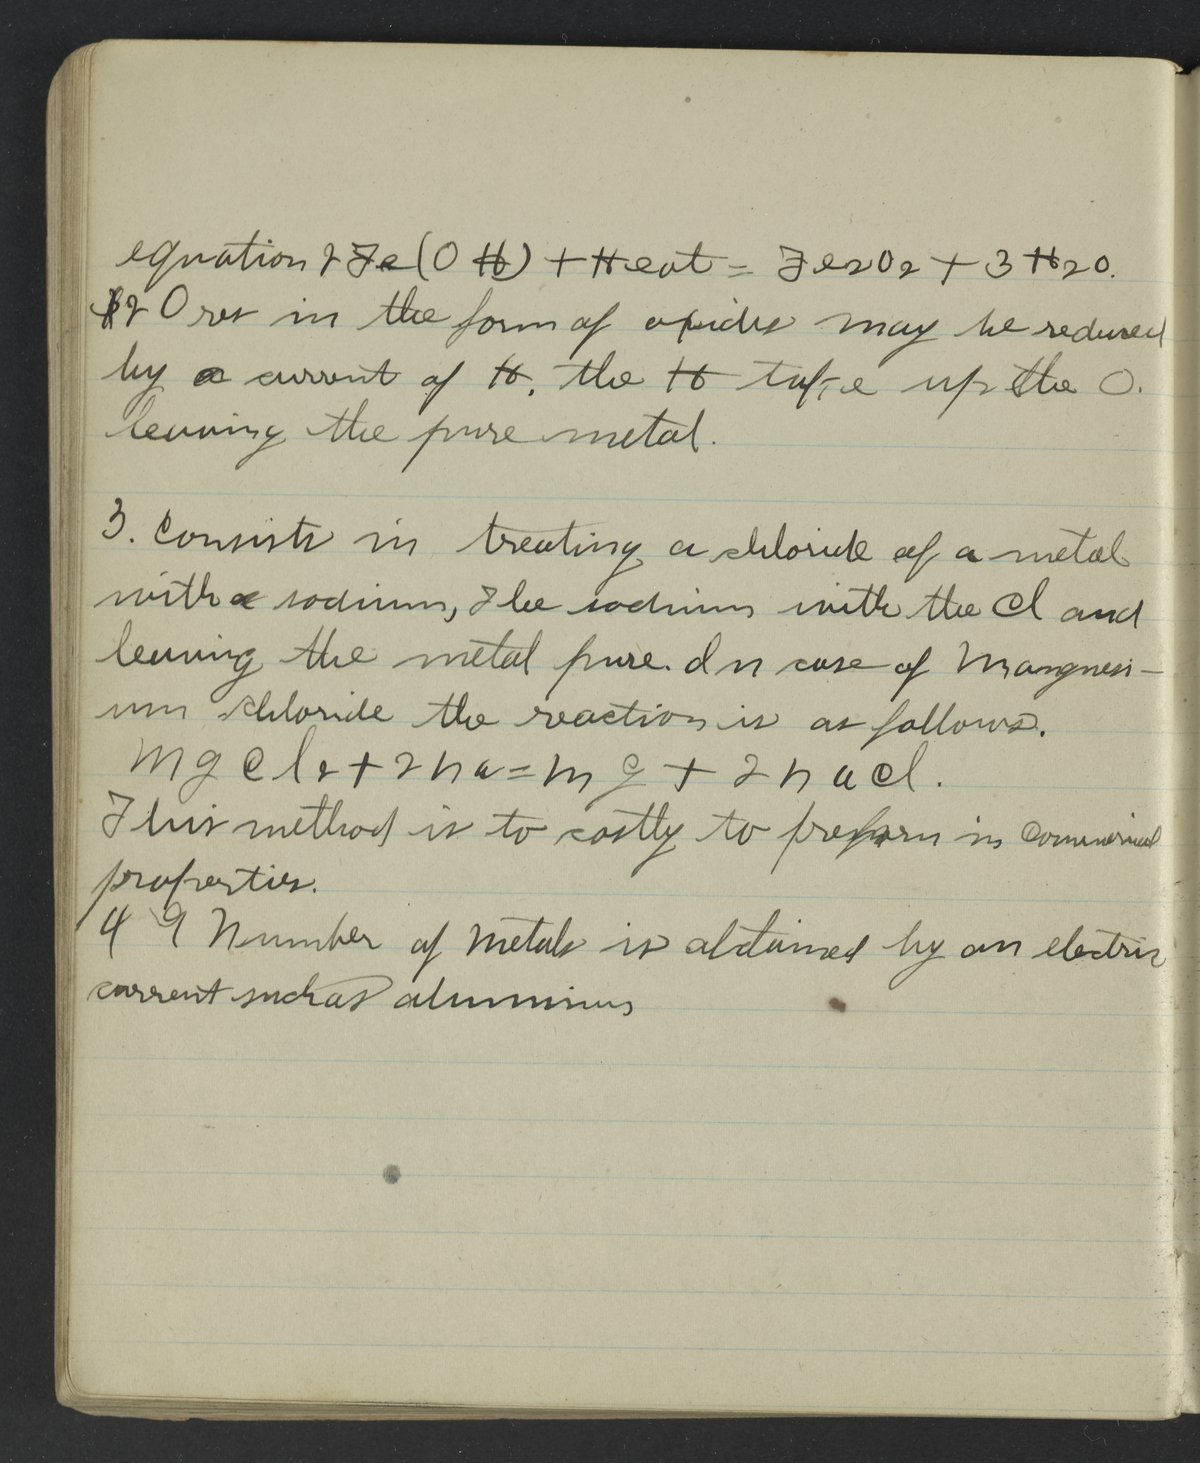 equation 2Fe(OH) + Heat = Fe2O2 + 3H2O.
2 Ores in the form of oxides may be reduced
by a current of H, the H take up the O.
leaving the pure metal.
3. Consists in treating a chloride of a metal
with sodium, The sodium with the Cl and
leaving the metal pure. In case of Mangnesi-
um chloride the reaction is as follows.
MgCl2 + 2Na = Mg + 2NaCl.
This method is to costly to preform in Commerical
properties.
4 A Number of Metals is obtained by an electric
current such as aluminum